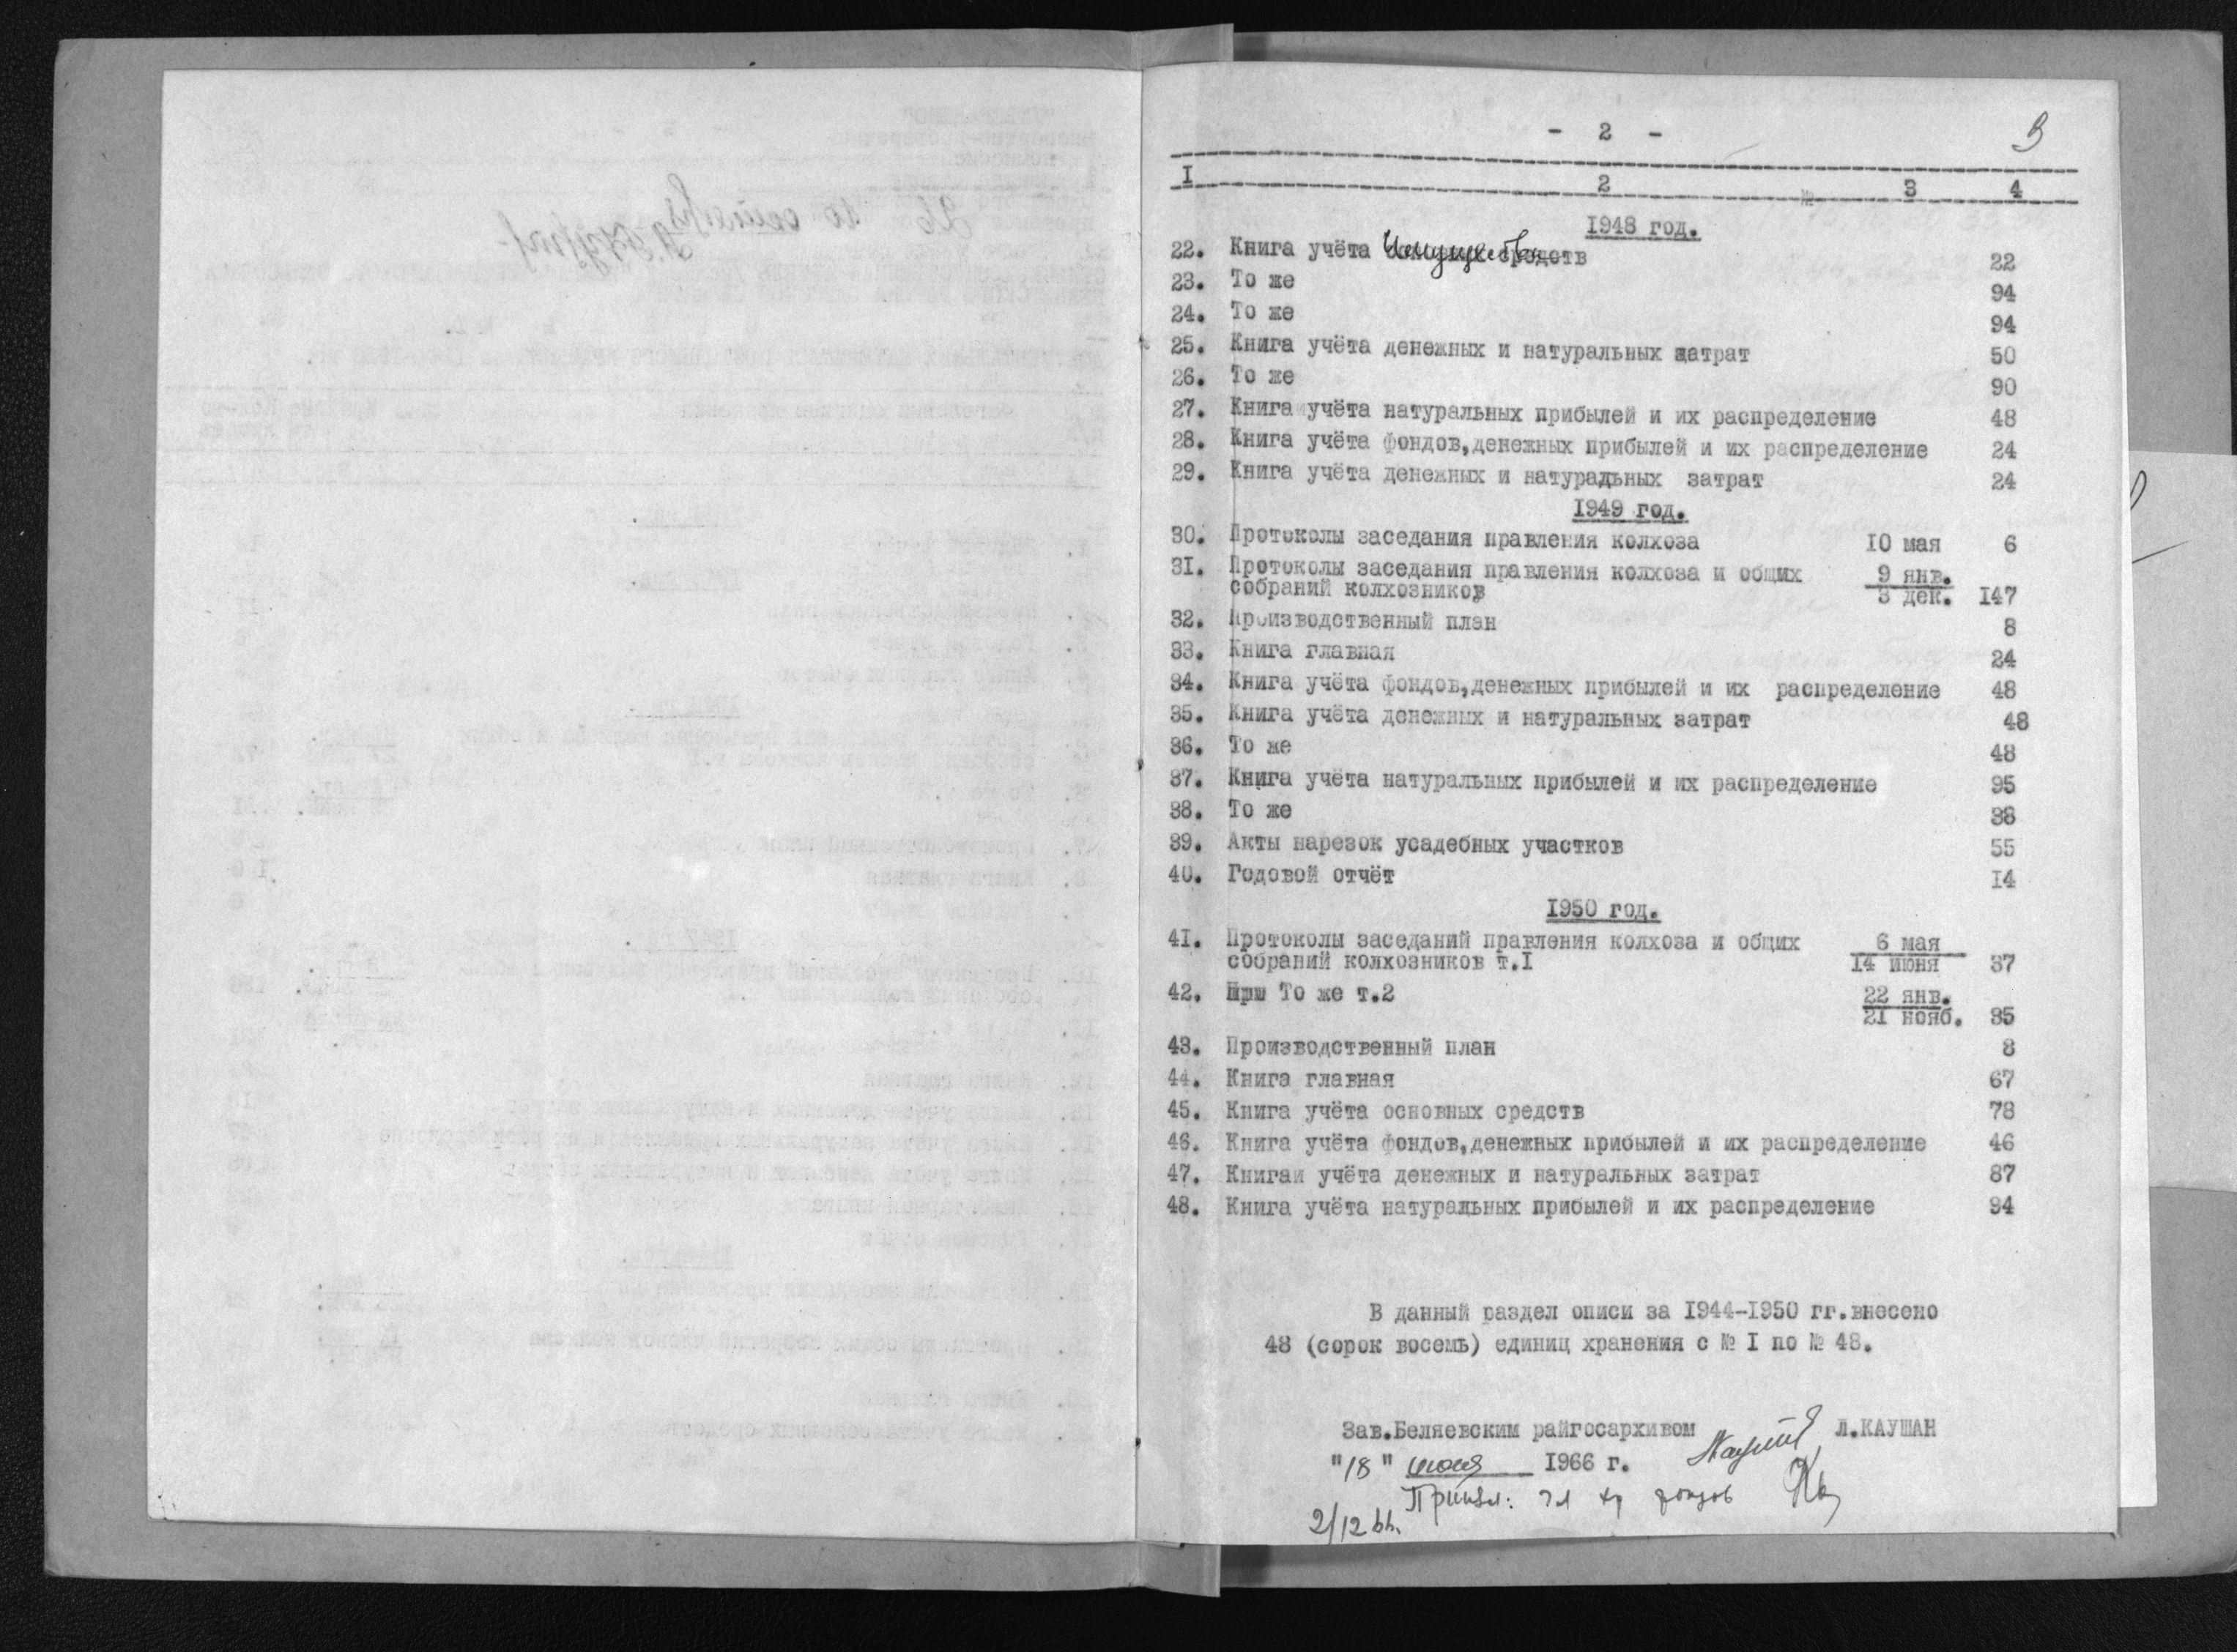 - 2 -
3
I 2 3 4
1948 год.
22. Книга учёта Имущества 22
23. То же 94
24. То же 94
25. Книга учёта денежных и натуральных затрат 50
26. То же 90
27. Книга учёта натуральных прибылей и их распределение 48
28. Книга учёта фондов,денежных прибылей и их распределение 24
29. Книга учёта денежных и натуральных затрат 24
1949 год.
30. Протоколы заседания правления колхоза 10 мая 6
31. Протоколы заседания правления колхоза и общих 9 янв.
собраний колхозников 3 дек. 147
32. Производственный план 8
33. Книга главная 24
34. Книга учёта фондов,денежных прибылей и их распределение 48
35. Книга учёта денежных и натуральных затрат 48
36. То же 48
37. Книга учёта натуральных прибылей и их распределение 95
38. То же 38
39. Акты нарезок усадебных участков 55
40. Годовой отчёт 14
1950 год.
41. Протоколы заседаний правления колхоза и общих 6 мая
собраний колхозников т.I 14 июня 37
42. То же т.2 22 янв.
21 нояб. 35
43. Производственный план 8
44. Книга главная 67
45. Книга учёта основных средств 78
46. Книга учёта фондов,денежных прибылей и их распределение 46
47. Книгаи учёта денежных и натуральных затрат 87
48. Книга учёта натуральных прибылей и их распределение 94
В данный раздел описи за 1944-1950 гг.внесено
48 (сорок восемь) единиц хранения с № I по № 48.
Зав.Беляевским райгосархивом Л.КАУШАН
"18" 1966 г.
фондов
2/12 66.